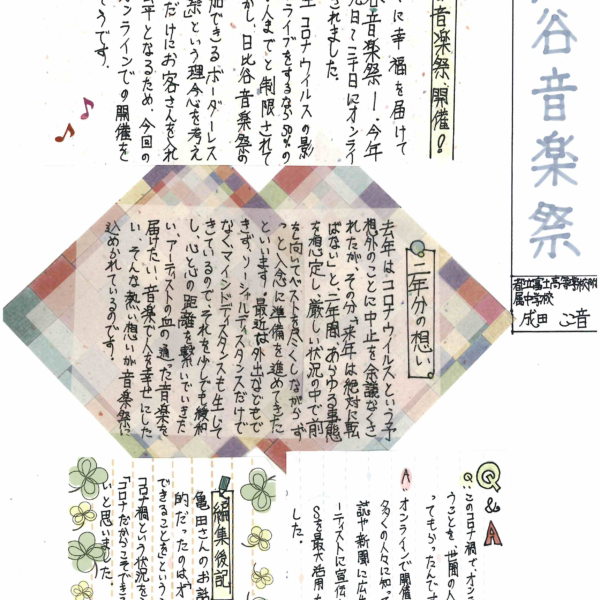 谷音楽祭
都立富士高等学校附
属中学校
成田 心音
音楽祭、開催!
々に幸福を届けて
谷音楽祭」。今年
されました。
コロナウイルスの影
ライブをするなら50%の
人までと制限されて
かし、日比谷音楽祭の
加できるボーダーレス
祭という理念を考え
だけにお客さんを入れ
平となるため、今回の
オンラインでの開催を
そうです。
二年分の想い。
去年はコロナウイルスという予
想外のことに中止を余議なくさ
れたが、その分「来年は絶対に転
ばない」と、二年間、あらゆる事態
を想定し、厳しい状況の中で前
を向いてベストを尽くしながらず
っと入念に準備を進めてきた
といいます。最近は外出などもで
きず、ソーシャルディスタンスだけで
なく、マインドディスタンスも生じて
きているので、それを少しでも緩和
し、心と心の距離を繋いでいきた
い、アーティストの血の通った音楽を
届けたい、音楽で人を幸せにした
い、そんな熱い想いが音楽祭に
込められているのです。
Q&A
Q:このコロナ禍で、オンラ
うことを、世間の人
ってもらったんです
A:オンラインで開催
多くの人々に知っ
誌や新聞に広告
ーティストに宣伝
Sを最大活用
した。
編集後記
亀田さんのお話
的だったのは、オ
できることを」という
コロナ禍という状況を
「コロナだからこそできる
いと思いました。